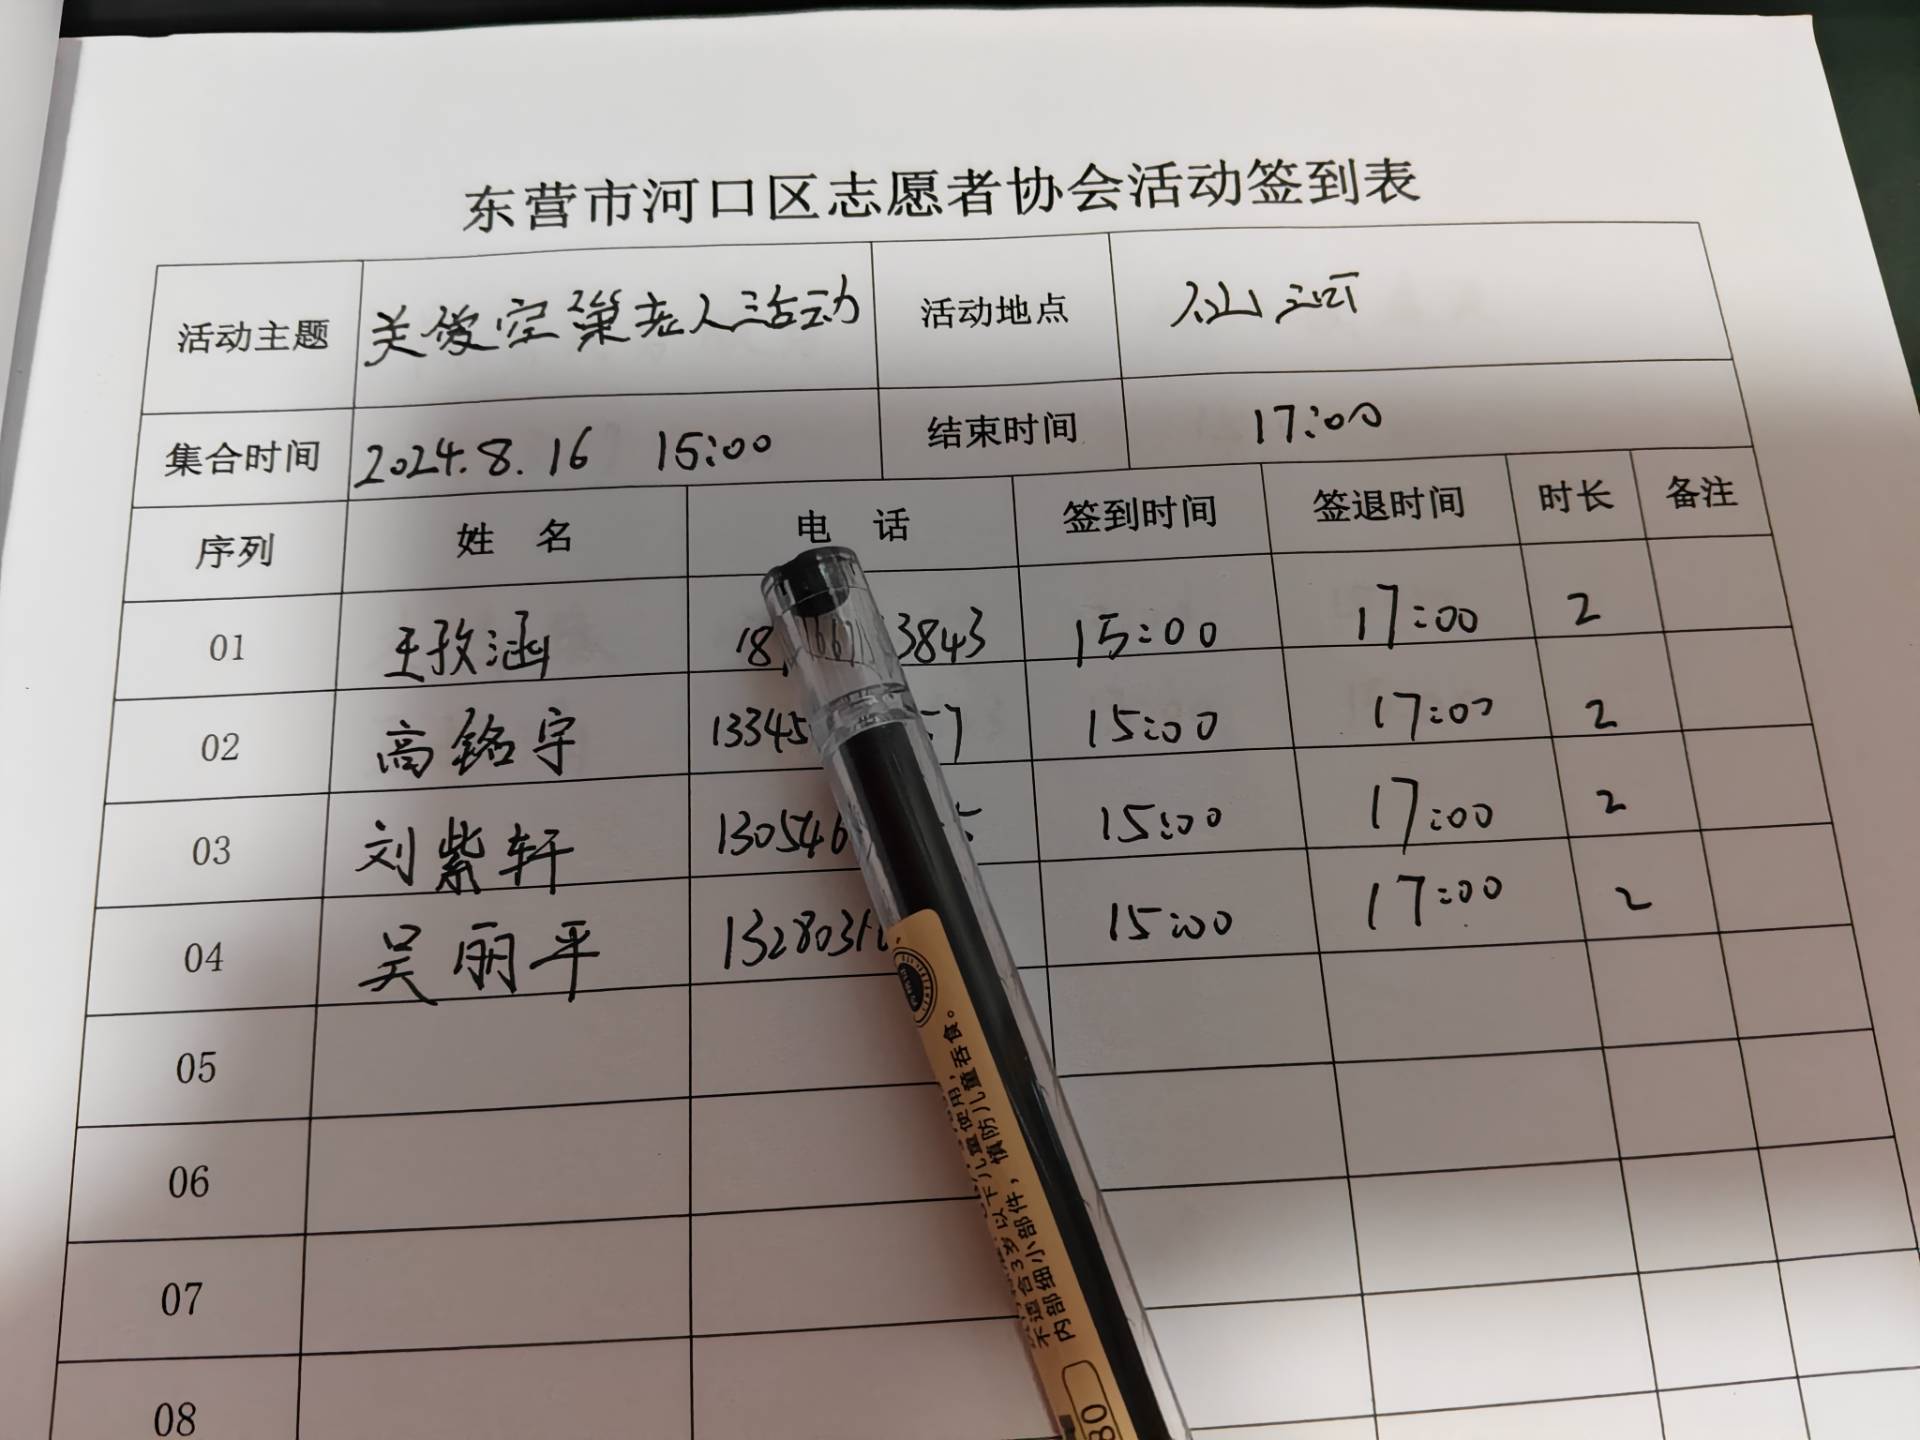 东营市河口区志愿者协会活动签到表
活动主题 关爱空巢老人活动 活动地点
集合时间 2024.8.16 15:00 结束时间 17:00
序列 姓 名 电 话 签到时间 签退时间 时长 备注
01 王孜涵 3843 15:00 17:00 2
02 高铭宇 13345 15:00 17:00 2
03 刘紫轩 130546 15:00 17:00 2
04 吴丽平 1328031 15:00 17:00 2
05
06
07
08
内部细小部件，慎防儿童吞食。
80